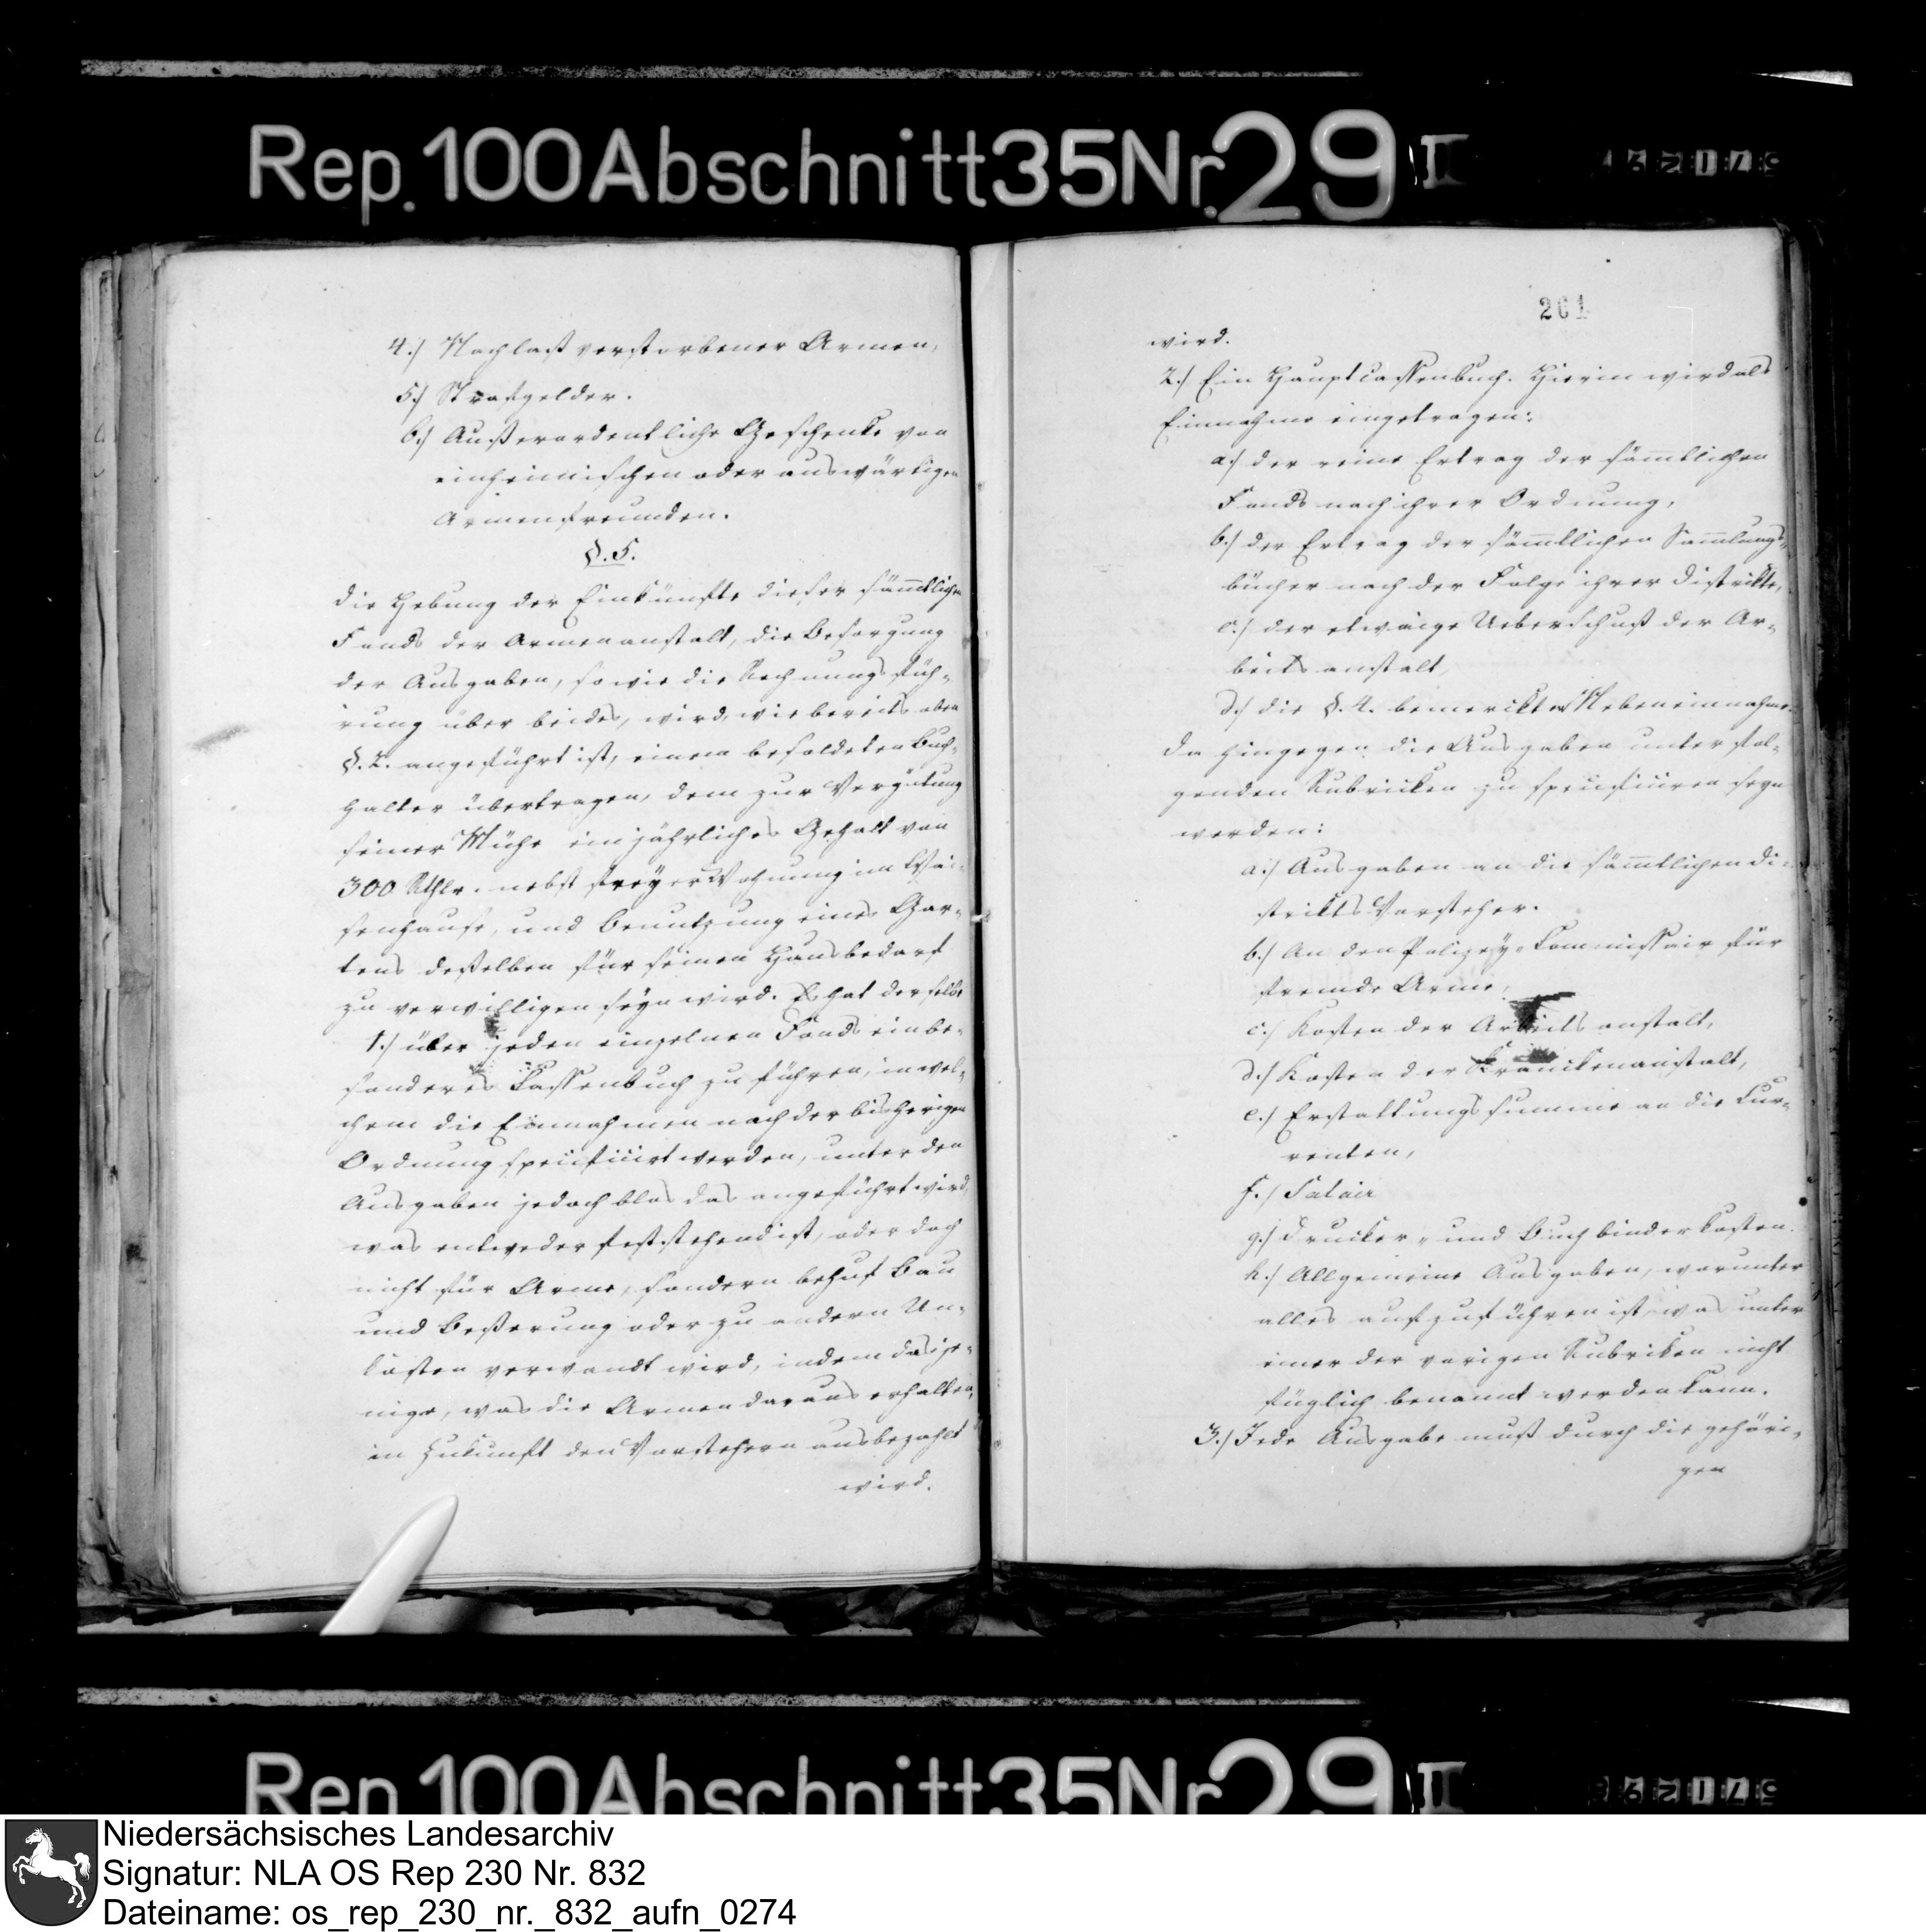 Rep. 100 Abschnitt 35 Nr. 29 I
4.) Nachlaß verstorbener Armen,
5.) Strafgelder.
6.) Außerordentliche Geschenke von
einheimischen oder auswärtigen
Armenfreunden.
§. 5.
Die Hebung der Einkünfte dieser sämtlichen
Fonds der Armenanstalt, die Besorgung
der Ausgaben, sowie die Rechnungsfüh-
rung über beides, wird, wie bereits oben
§. 2. angeführt ist, einem besoldeten Buch-
halter übertragen, dem zur Vergütung
seiner Mühe ein jährliches Gehalt von
300 Rthlr. nebst freyer Wohnung im Wai-
senhause, und Benutzung eines Gar-
tens deßelben für seinen Hausbedarf
zu verwilligen seyn wird. Es hat derselbe
1.) über jeden einzelnen Fond ein be-
sonderes Cassenbuch zu führen, in wel-
chem die Einnahmen nach der bisherigen
Ordnung specificirt werden, unter den
Ausgaben jedoch blos das angeführt wird,
was entweder feststehend ist, oder doch
nicht für Arme, sondern behuf Bau
und Beßerung oder zu andern Un-
kosten verwandt wird, indem dasje-
nige, was die Armen daraus erhalten,
in Zukunft den Vorstehern ausbezahlt
wird.
201
wird.
2.) Ein Hauptcassenbuch. Hierin wird als
Einnahme eingetragen:
a.) der reine Ertrag der sämtlichen
Fonds nach ihrer Ordnung,
b.) der Ertrag der sämtlichen Samlungs-
bücher nach der Folge ihrer Distrikte,
c.) der etwaige Ueberschuß der Ar-
beitsanstalt,
d.) die §. 4. bemerkten Nebeneinnahmen.
Da hingegen die Ausgaben unter fol-
genden Rubricken zu specificiren seyn
werden:
a.) Ausgaben an die sämtlichen Di-
strikts Vorsteher.
b.) An den Polizey-Commissair für
fremde Arme,
c.) Kosten der Arbeitsanstalt,
d.) Kosten der Kranckenanstalt,
e.) Erstattungssumme an die Cur-
renten,
f.) Salair
g.) Drucker- und Buchbinderkosten.
h.) Allgemeine Ausgaben, worunter
alles aufzuführen ist, was unter
einer der vorigen Rubriken nicht
füglich benannt werden kann.
3.) Jede Ausgabe muß durch die gehöri-
gen
Rep. 100 Abschnitt 35 Nr. 29 I
Niedersächsisches Landesarchiv
Signatur: NLA OS Rep 230 Nr. 832
Dateiname: os_rep_230_nr._832_aufn_0274